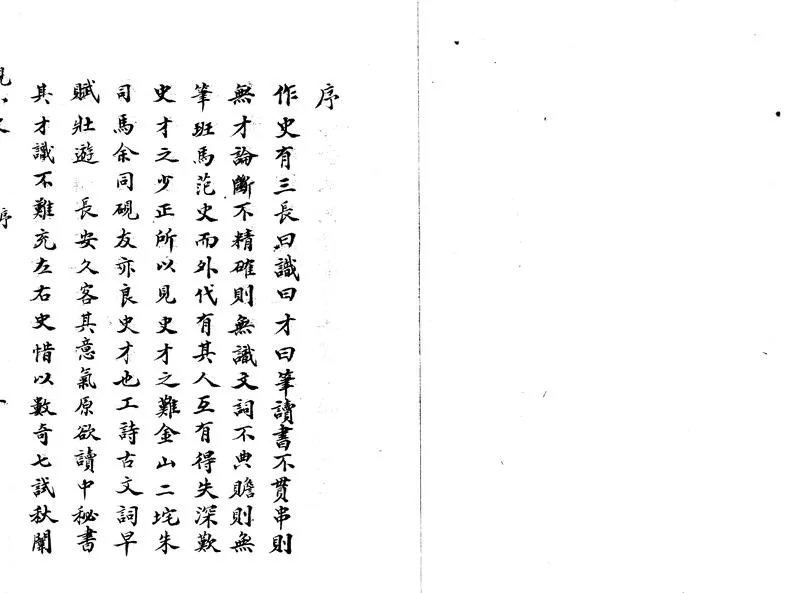 序
作史有三長曰識曰才曰筆讀書不貫串則
無才論斷不精確則無識文詞不典贍則無
筆班馬范史而外代有其人互有得失深歎
史才之少正所以見史才之難金山二垞朱
司馬余同硯友亦良史才也工詩古文詞早
賦壯遊 長安久客其意氣原欲讀中秘書
其才識不難充左右史惜以數奇七試秋闈
序
一